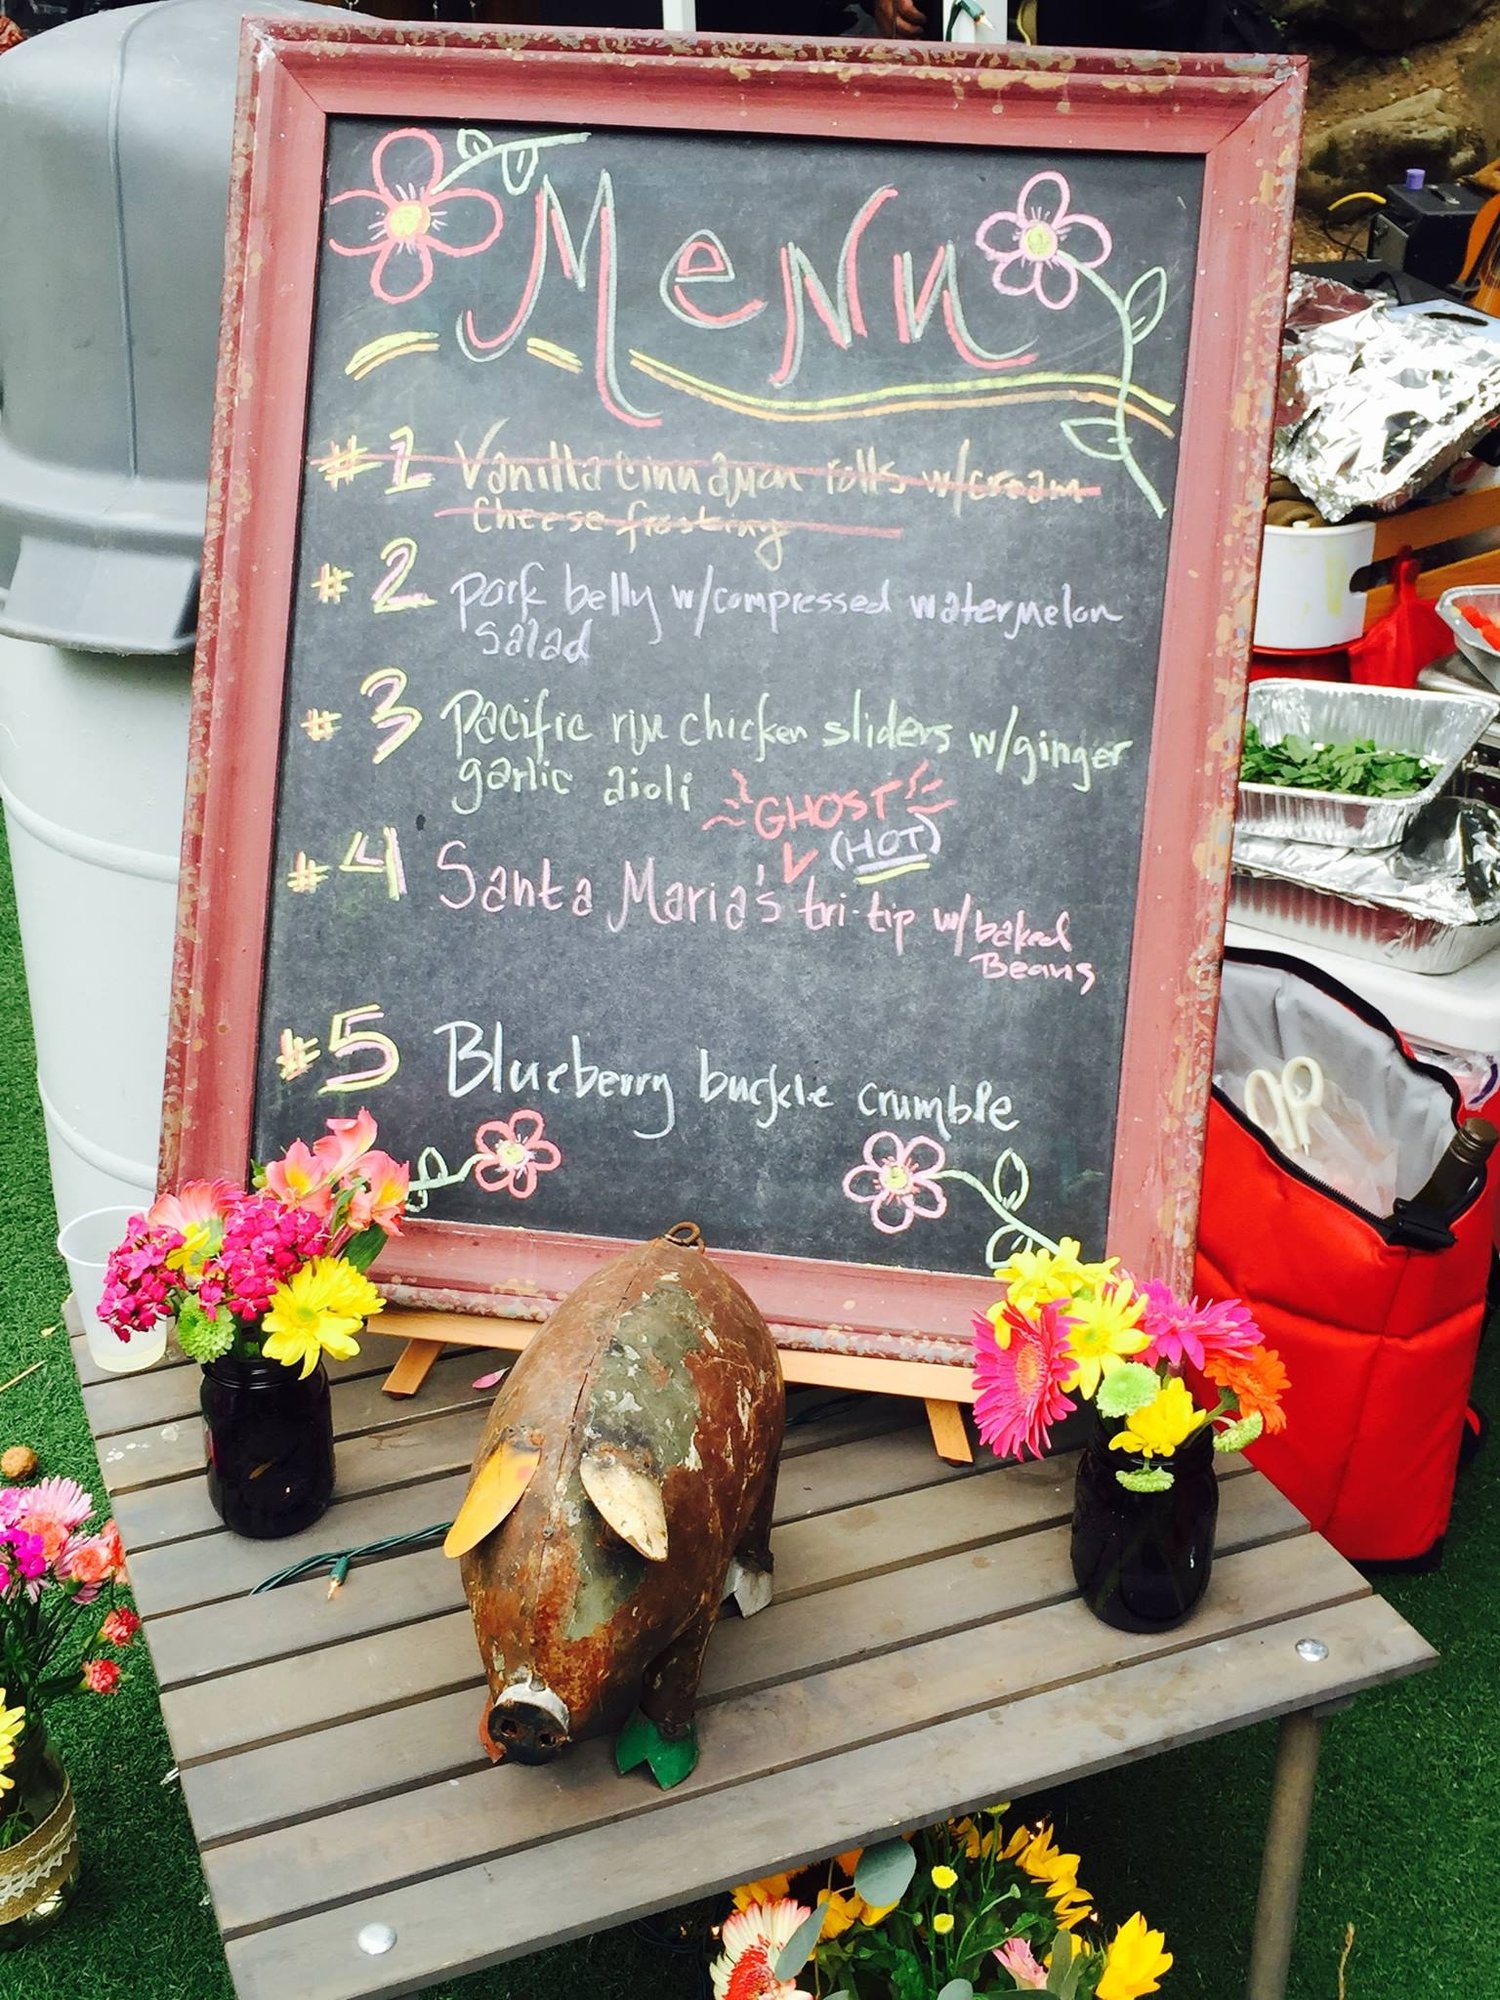 Menu
#1 Vanilla cinnamon rolls w/cream
cheese frosting
#2 pork belly w/compressed watermelon
salad
#3 Pacific rim chicken sliders w/ginger
garlic aioli
GHOST
(HOT)
#4 Santa Maria's tri-tip w/baked
Beans
#5 Blueberry buckle crumble